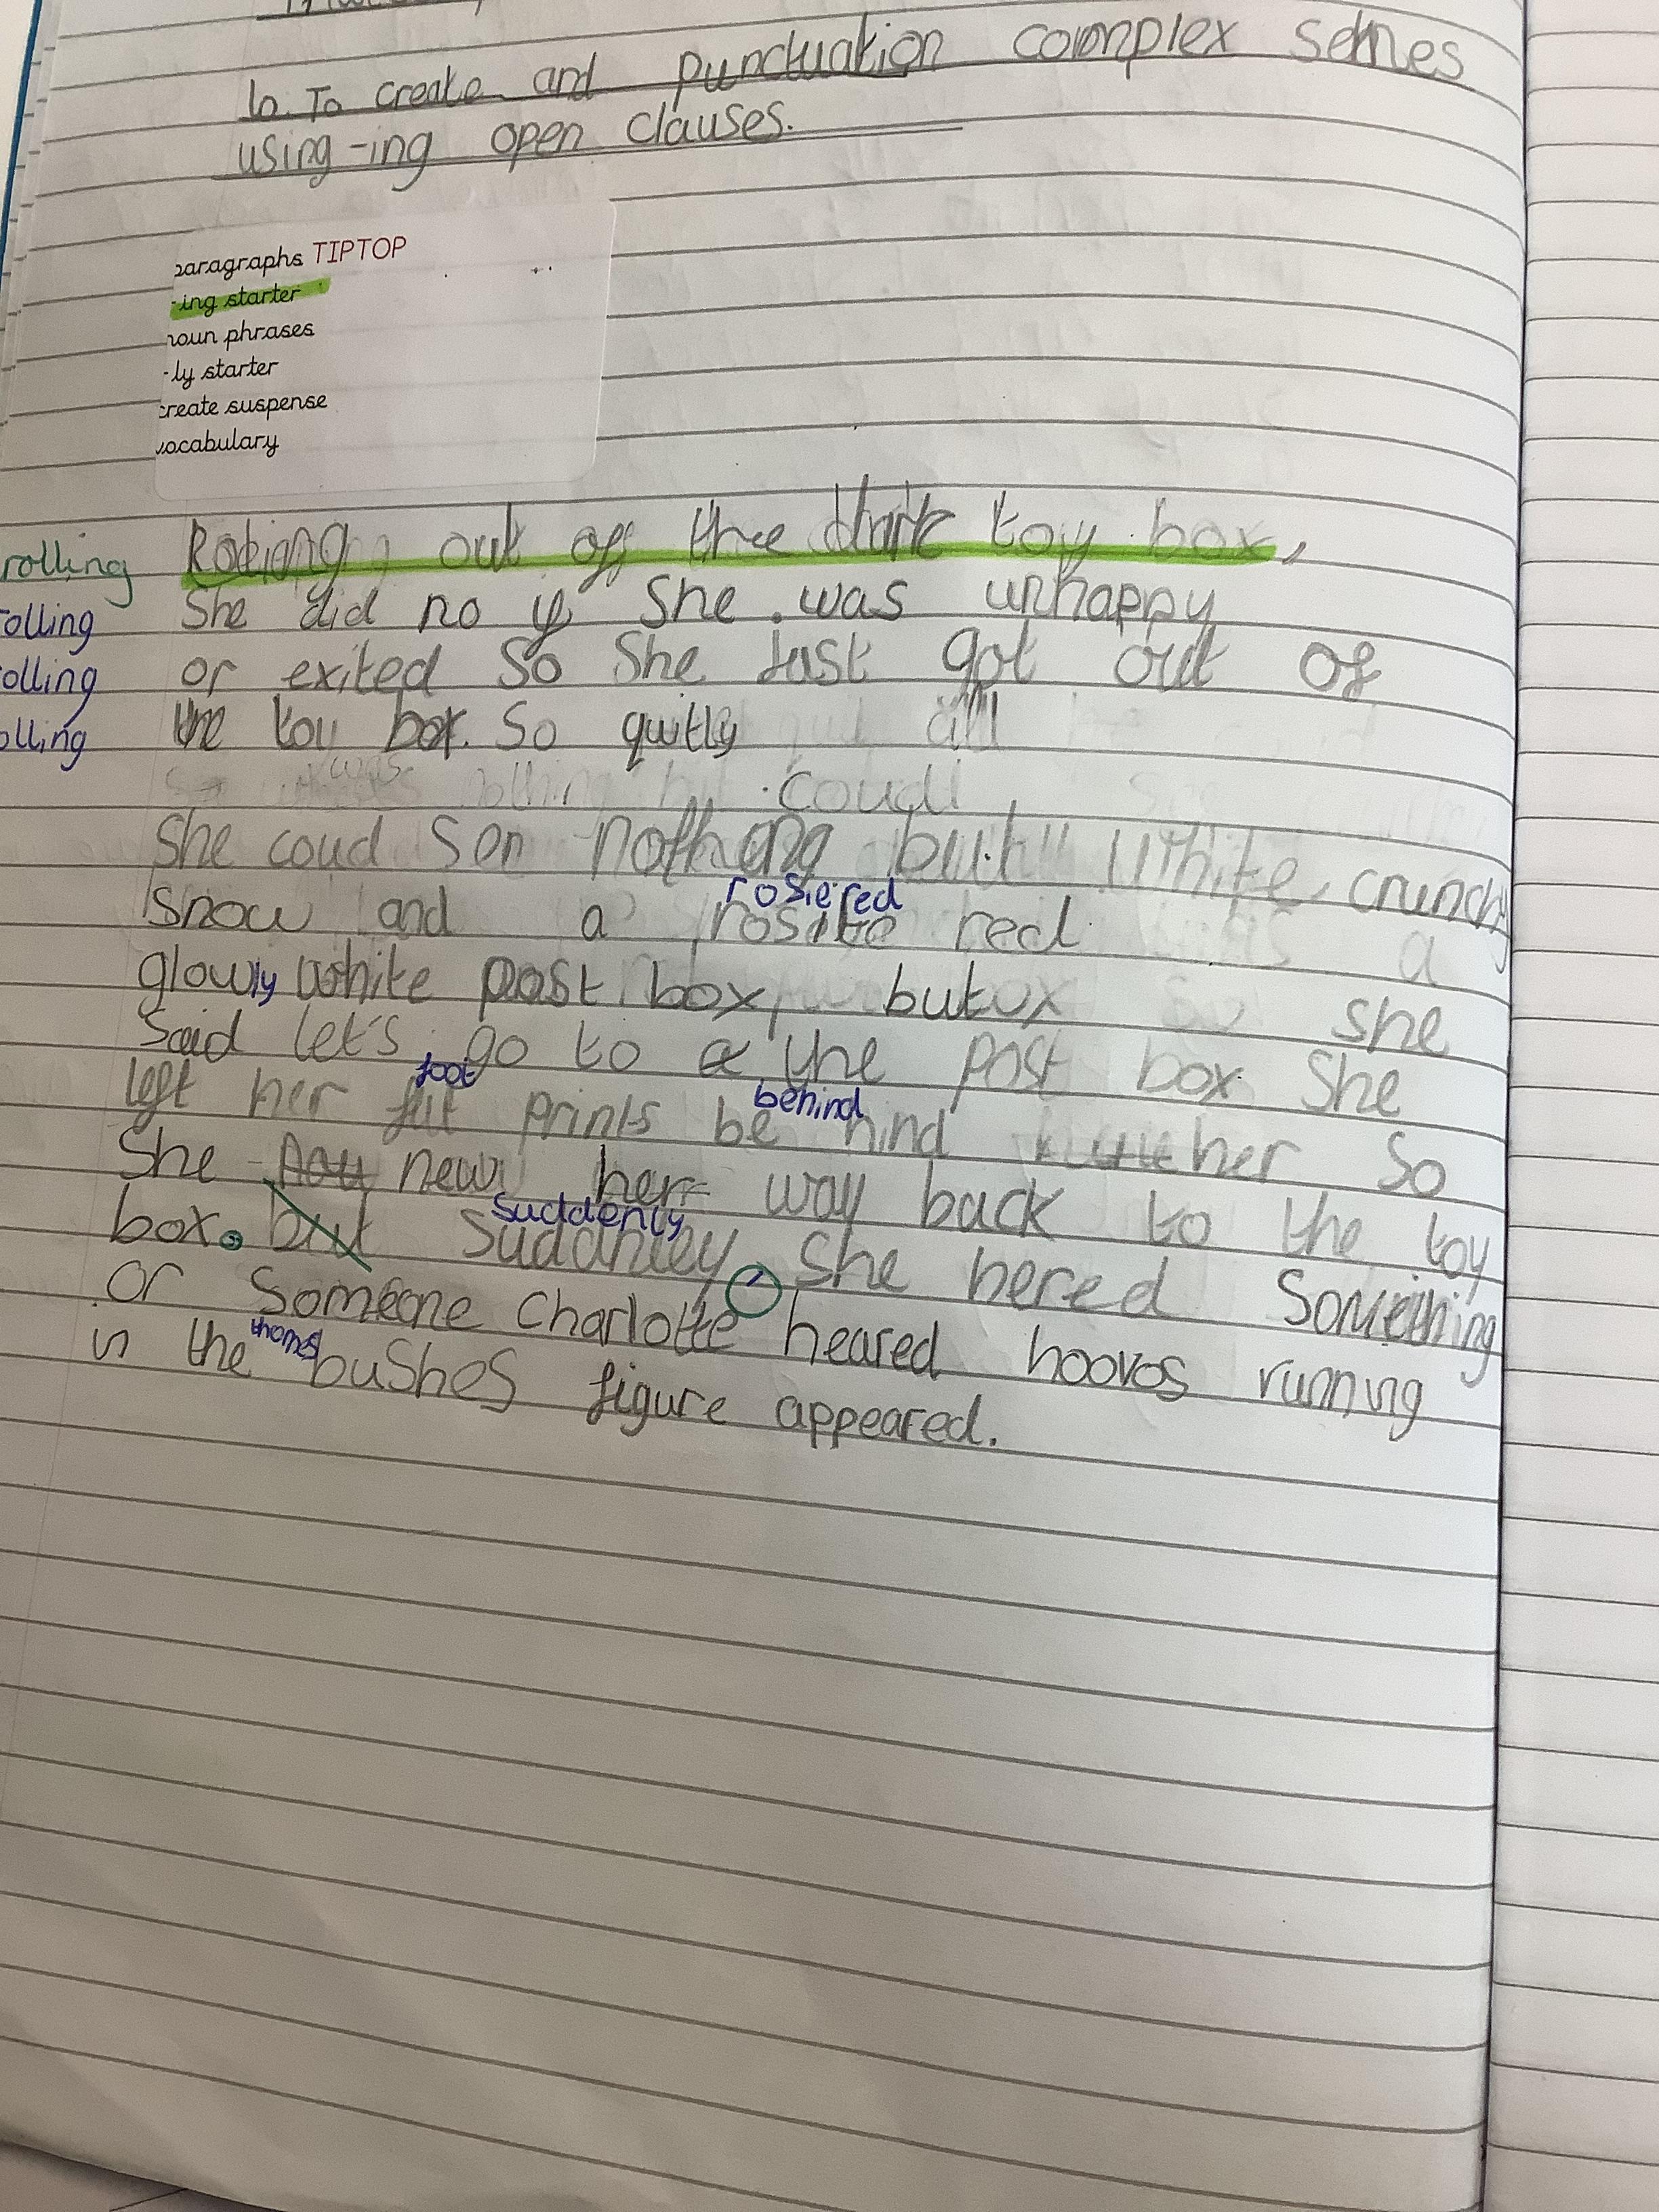 Lo. To create and punctuation complex setnes
using -ing open clauses.
paragraphs TIPTOP
-ing starter
noun phrases
-ly starter
create suspense
vocabulary
rolling
rolling
rolling
rolling
out off the dark toy box,
She did no if She was unhappy
or exited So She Just got out of
the toy box. So quitly all
was nothing coud
She coud See nothing but White, crunchy
rosie red
Snow and a red a
glowly White post box, but she
Said let's go to the post box She
foot behind
left her fut prints be hind her So
She new her way back to the toy
Suddenly
box. but Suddnley, She hered Something
or Someone Charlotte heared hooves running
thornes
in the bushes figure appeared.